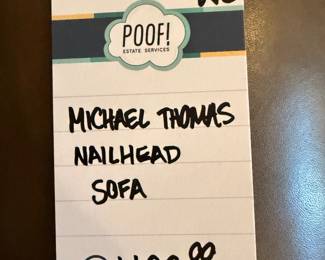 POOF!
ESTATE SERVICES
MICHAEL THOMAS
NAILHEAD
SOFA